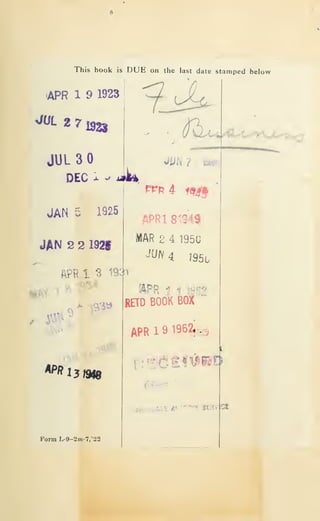 This book is DUE on the last date stamped below
APR 19 1923
JUL 27 1923
JUL 30
DEC
JAN 5 1925
JAN 22 192
APR 13 193
JUN 9
APR 13 1948
File
Business
JUN 7
FEB 4 1949
APR 18 1949
MAR 24 1950
JUN 4 195
APR 1962
RETD BOOK BOX
APR 19 1962
RECEIVED
Form L-9-2m-7,'22